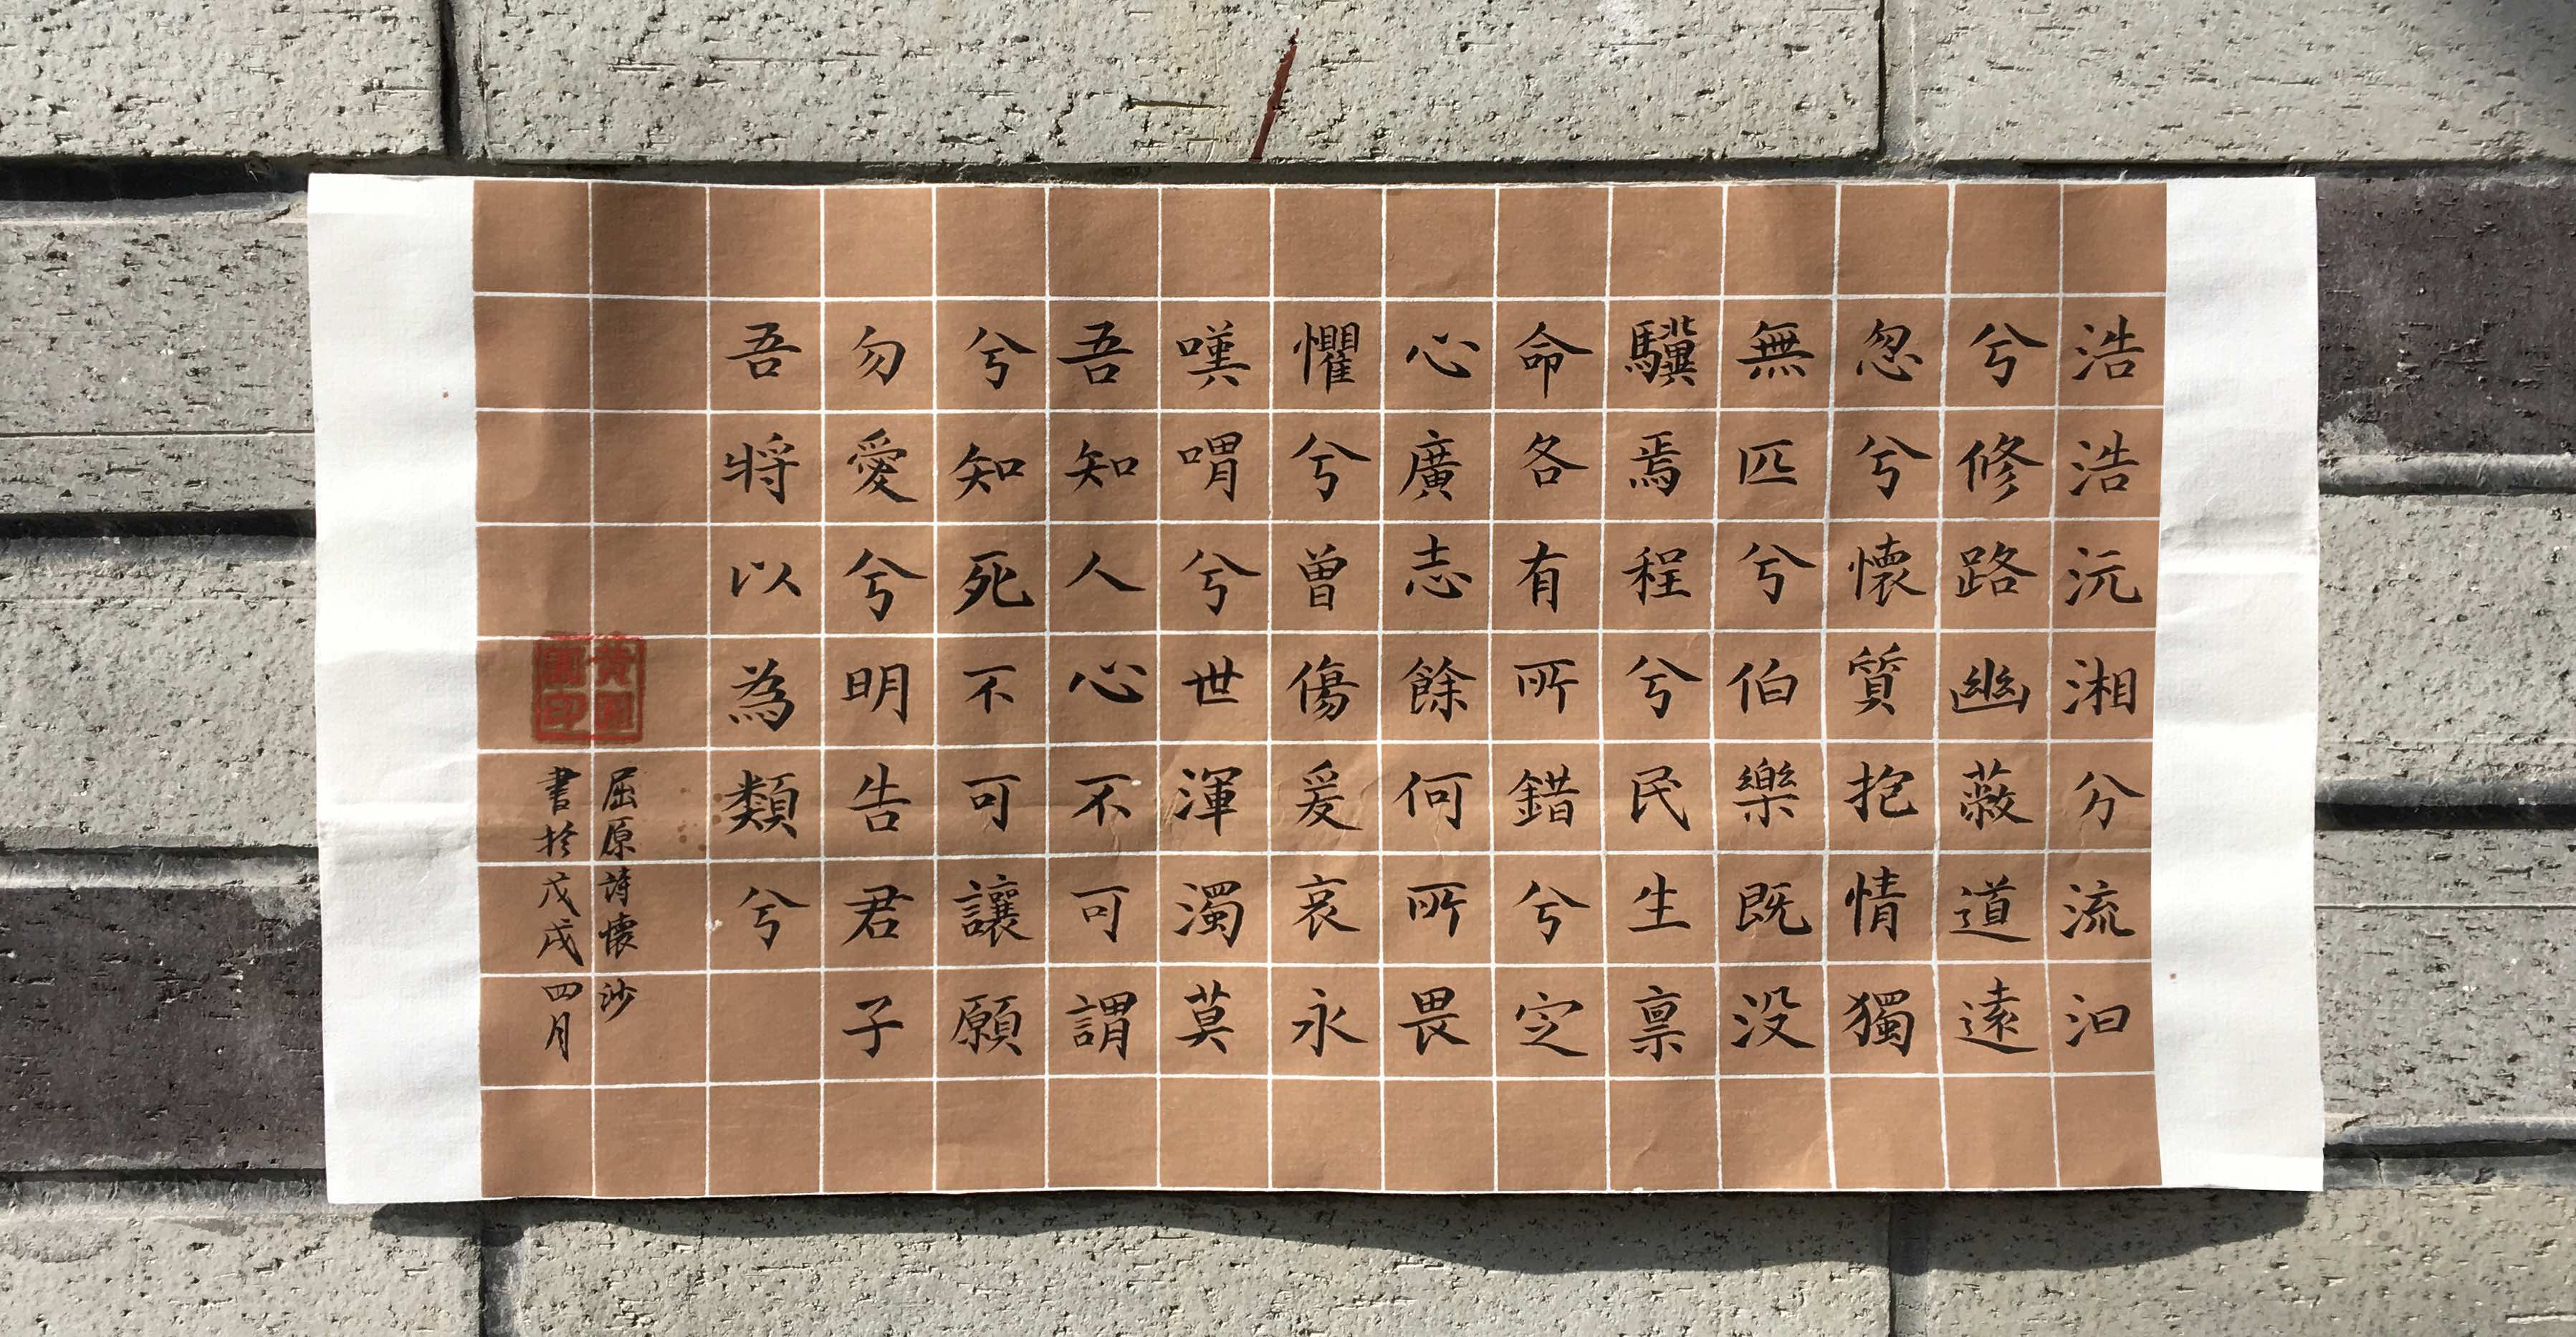 浩浩沅湘兮流汩
兮修路幽蔽道遠
忽兮懷質抱情獨
無匹兮伯樂既没
驥焉程兮民生禀
命各有所錯兮定
心廣志餘何所畏
懼兮曾傷爰哀永
嘆喟兮世渾濁莫
吾知人心不可謂
兮知死不可讓願
勿愛兮明告君子
吾將以為類兮
屈原詩懷沙
書於戊戌四月